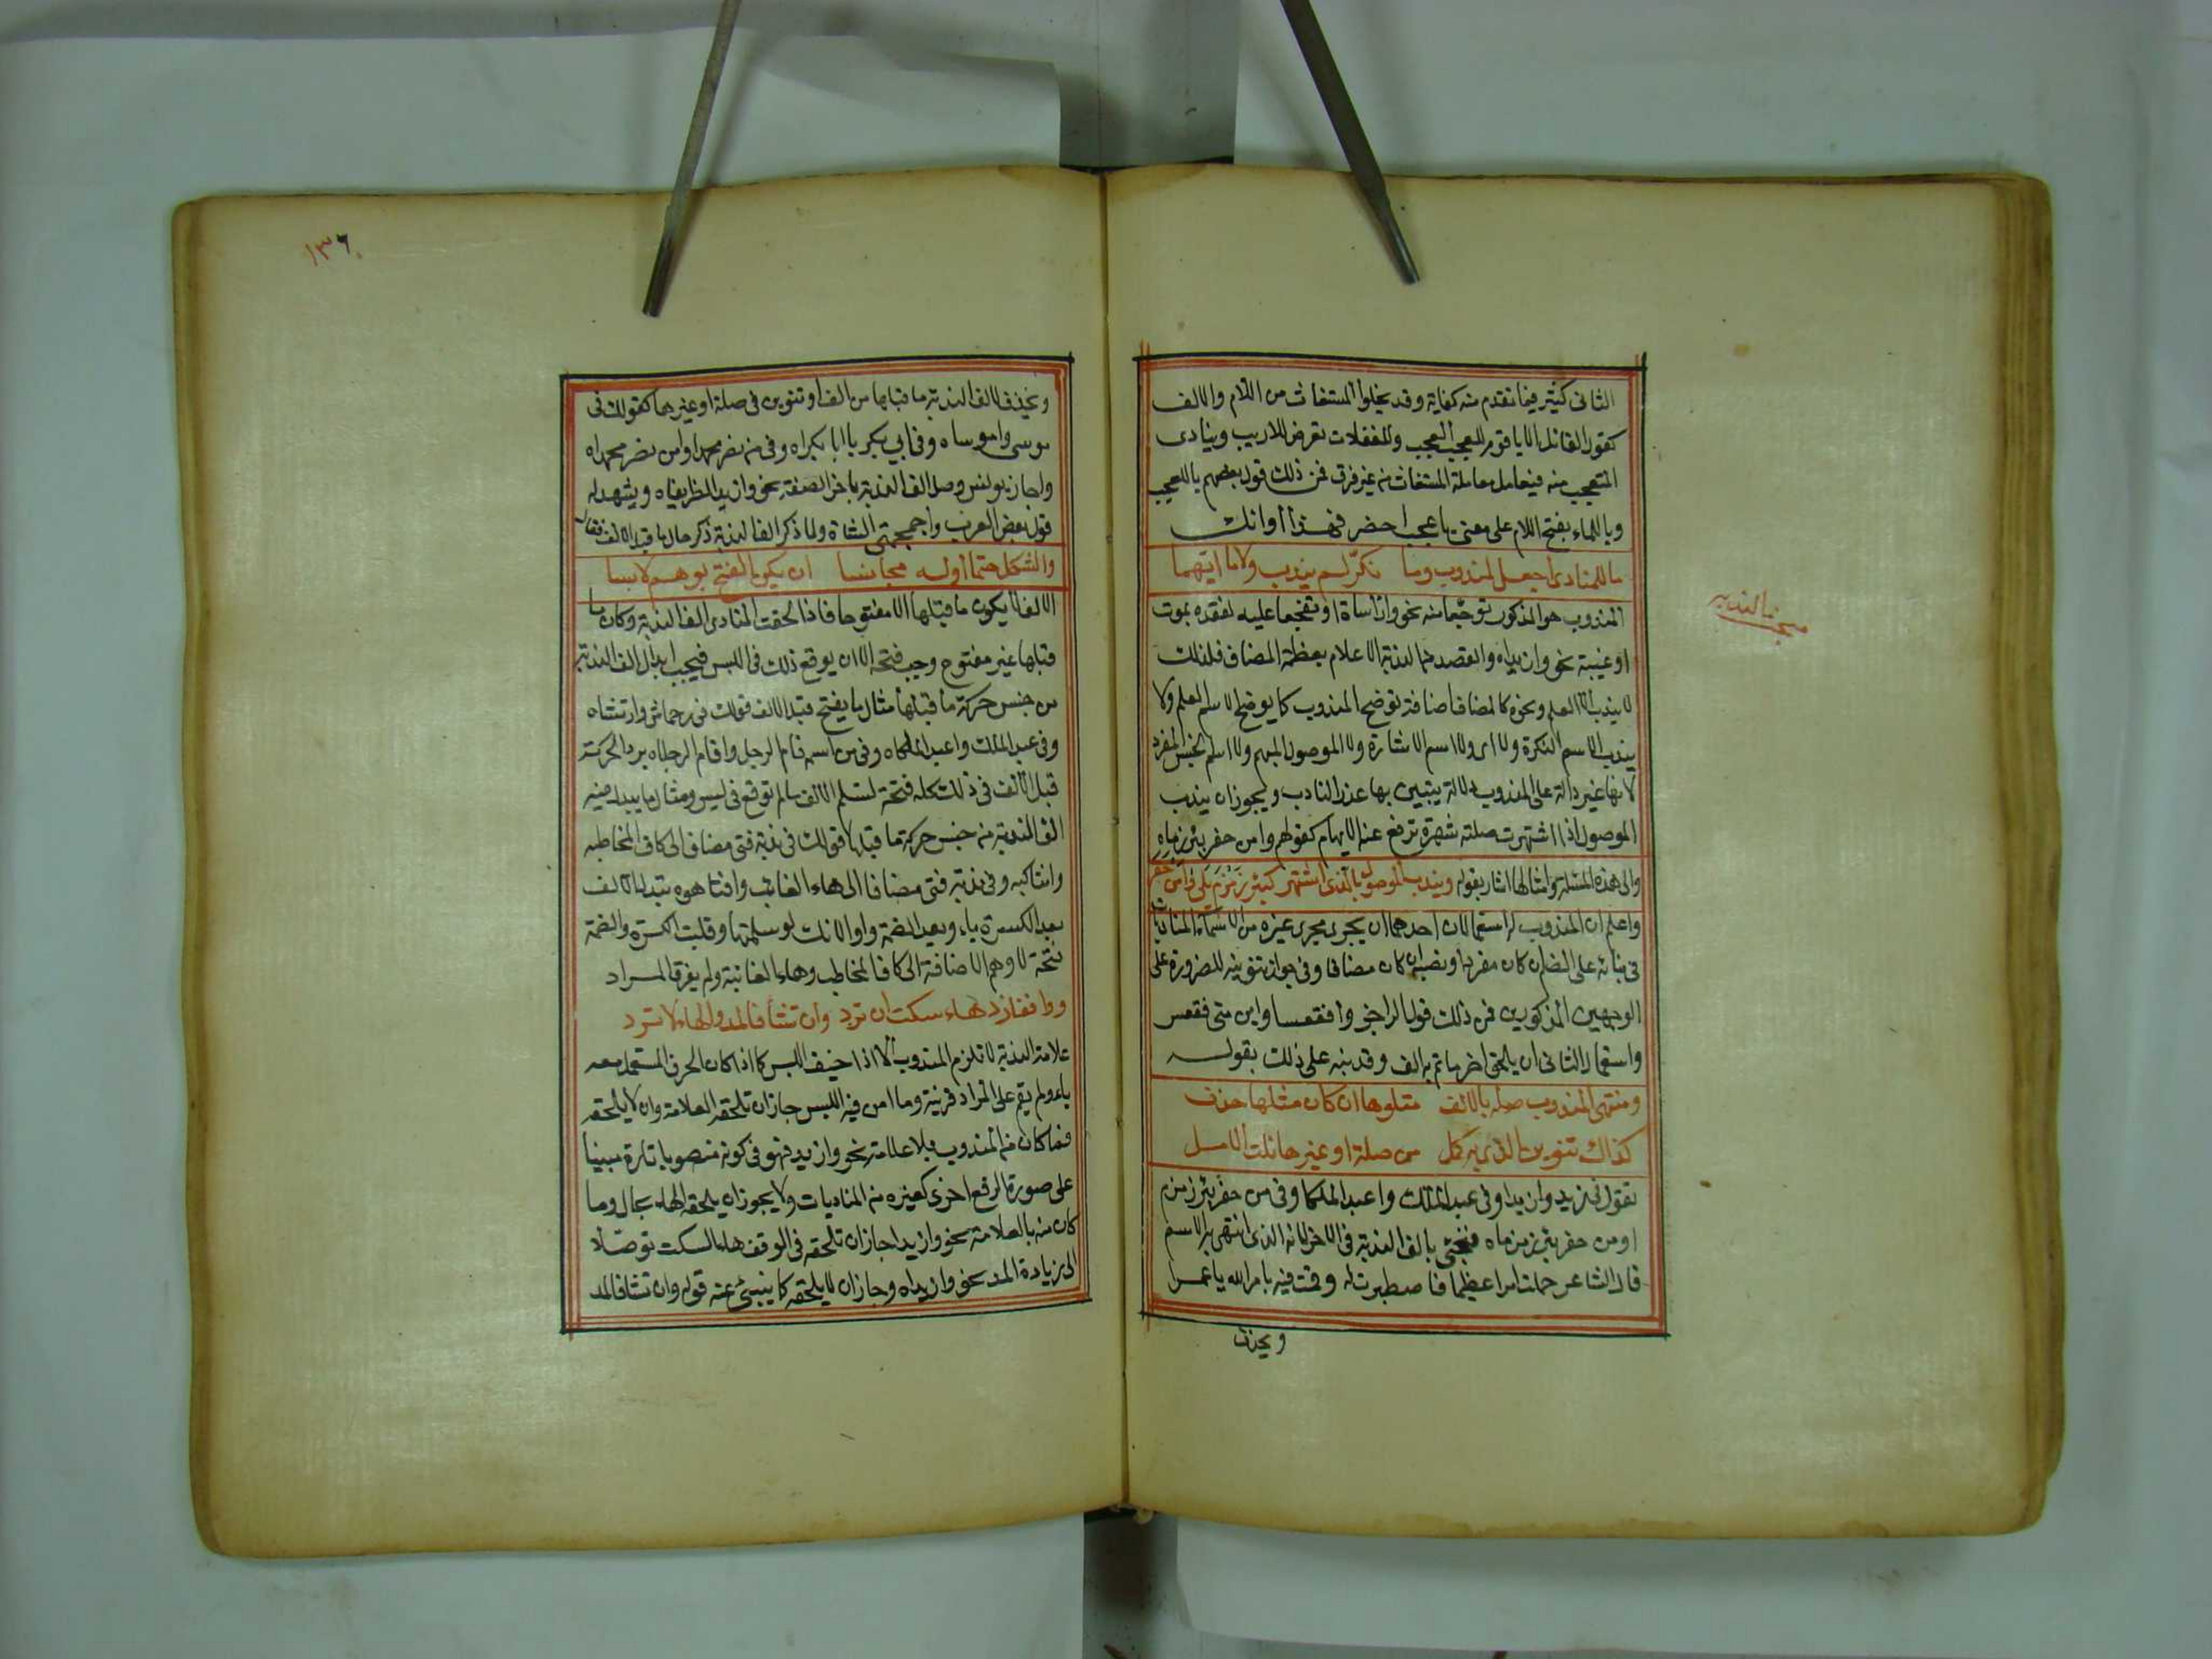 الثانى كثير فيما تقدم منه كفاية وقد يخلوا المستغاث من اللام والالف
كقول القائل الا يا قوم للعجب العجيب وللغفلات تعرض للاريب وينادى
المتعجب منه فيعامل معاملة المستغاث من غير فرق فمن ذلك قول بعضهم يا للعجب
ويا للماء بفتح اللام على معنى يا عجب احضر فهذا أوانك
ما للمنادى اجعل لمندوب وما نكّر لم يندب ولا ما ابهما
مبحث الندبه
المندوب هو المذكور توجّعا منه نحو واراساه او تفجعا عليه لفقده بموت
او غيبة نحو وازيداه والقصد من الندبة الاعلام بعظمة المصاف فلذلك
لا يندب الا العلم ونحوه كالمضاف اضافة توضح المندوب كما يوضح الاسم العلم ولا
يندب الاسم النكرة ولا اى ولا اسم الاشارة ولا الموصول المبهم ولا اسم الجنس المفرد
لانها غير دالة على المندوب دلالة يتبين بها عذر النادب ويجوز ان يندب
الموصول اذا اشتهرت صلته شهرة ترفع عنه الابهام كقولهم وامن حفر بئر زمزماه
والى هذه المسئلة وامثالها اشار بقوله ويندب الموصول بالذى اشتهر كبئر زمزم يلى وامن حفر
واعلم ان المندوب له استعمالان احدهما ان يجرى مجرى غيره من الاسماء المناديات
فى بنائه على الضم ان كان مفردا ونصبه ان كان مضافا وفى جواز تنوينه للضرورة على
الوجهين المذكورين فمن ذلك قول الراجز وافقعسا واين منى فقعس
واستعمال الثانى ان يلحق اخر ما تم به الف وقد نبه على ذلك بقوله
ومنتهى المندوب صله بالالف متلوها ان كان مثلها حذف
كذاك تنوين الذى به كمل من صلة او غيرها نلت الامل
تقول فى زيد وازيدا وفى عبد الملك واعبد الملكا وفى من حفر بئر زمزم
اومن حفر بئر زمزماه فتجئ بالف الندبة فى الاخر لانه الذى انتهى به الاسم
قال الشاعر حملت امرا عظيما فاصطبرت له وقمت فيه بامر الله يا عمرا
ويحذف
١٣٦
ويحذف لالف الندبة ما قبلها من الف او تنوين فى صلة او غيرها كقولك فى
موسى واموساه وفى ابى بكر يا ابا بكراه وفى من نصر محمدا وامن نصر محمداه
واجاز يونس وصل الف الندبة باخر الصفة نحو وازيد الظريفاه ويشهد له
قول بعض العرب واجمجمتى الشاة ولما ذكر الف الندبة ذكر حال ما قبل الالف فقال
والشكل حتما أوله مجانسا ان يكن الفتح بوهم لابسا
الالف لا يكون ما قبلها الا مفتوحا فاذا لحقت المنادى الف الندبة وكان ما
قبلها غير مفتوح وجب فتحه الا ان يوقع ذلك فى اللبس فيجب ابدال الف الندبة
من جنس حركة ما قبلها مثال ما يفتح قبل الالف قولك فى رقاش وارقاشاه
وفى عبد الملك واعبد الملكاه وفى من اسمه قام الرجل واقام الرجلاه برد الحركة
قبل الالف فى ذلك كله فتحة لتسلم الالف ما لم توقع فى لبس ومثال ما يبدل فيه
الف الندبة من جنس حركة ما قبلها قولك فى ندبة فتى مضاف الى كاف المخاطبه
وافتاكيه وفى ندبة فتى مضافا الى هاء الغائب وافتاهوه بتبدل الالف
بعد الكسرة ياء وبعد الضمة واوا لانك لو سلمتها وقلبت الكسرة والضمة
فتحة لاوهم الاضافة الى كاف المخاطب وهاء الغائبة ولم يفرق المراد
وواقفا زد هاء سكت ان ترد وان تشأ فالمد والهاء لا تزد
علامة الندبة لا تلزم المندوب الا اذا خيف اللبس كما اذا كان الحرف المستعمل معه
ياء ولم يقم على المراد قرينة وما امن فيه اللبس جاز ان تلحقه العلامة وان لا يلحقه
فما كان من المندوب بلا علامة نحو وازيد فهو فى كونه منصوبا تارة مبنيا
على صورة الرفع اخرى كغيره من المناديات ولا يجوز ان يلحقه الهاء بحال وما
كان منه بالعلامة نحو وازيدا جاز ان تلحقه فى الوقف هاء السكت توصّلا
الى زيادة المد نحو وازيداه وجاز ان لا يلحقه كما ينبئ عنه قوله وان تشا فالمد